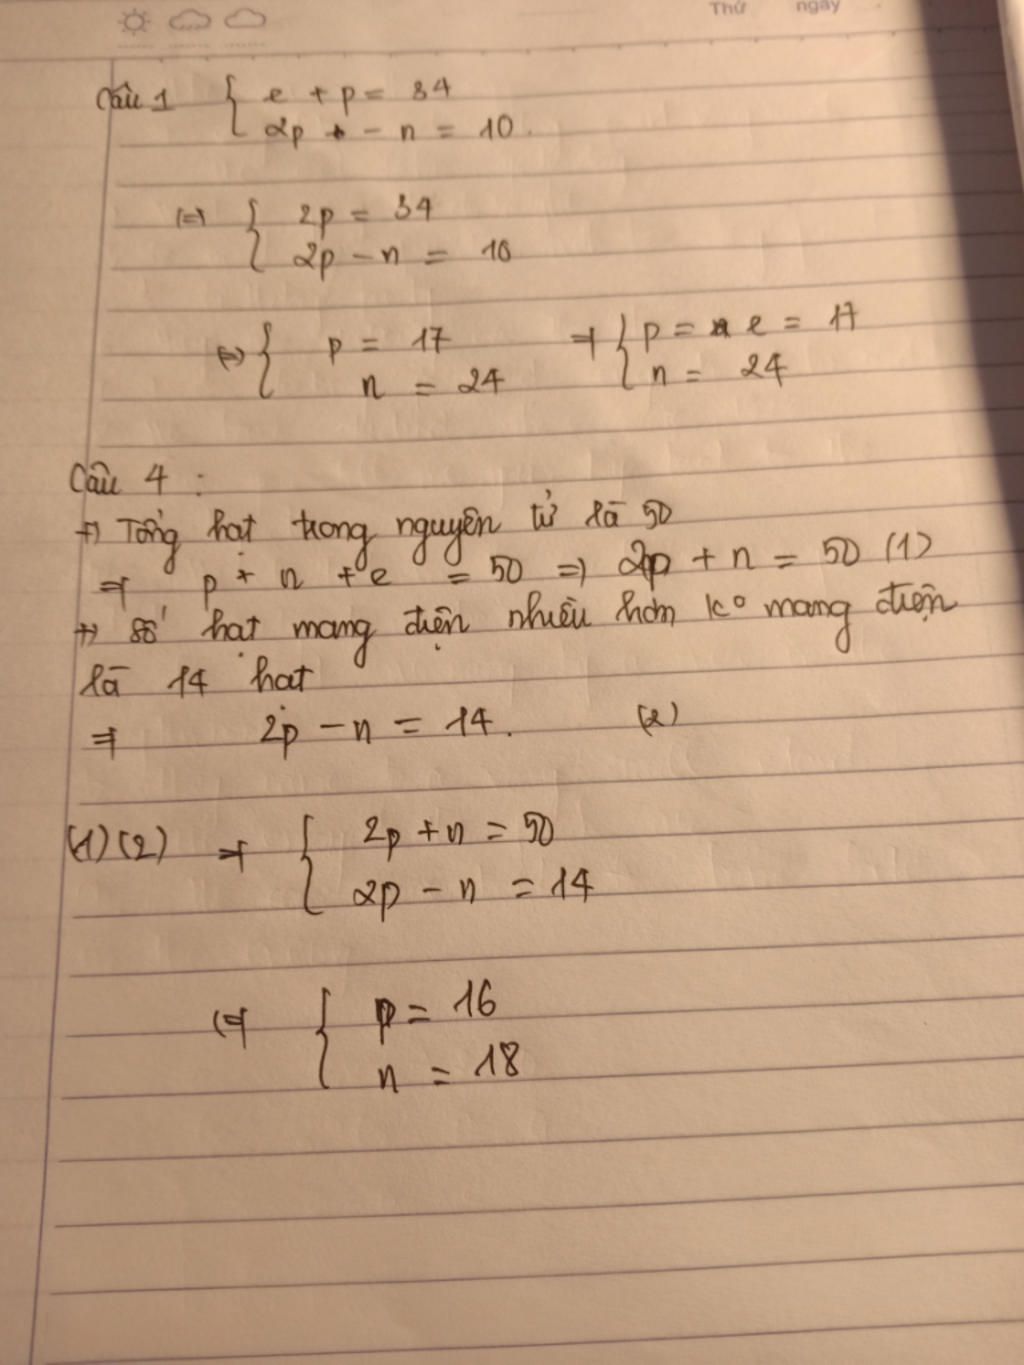 Thứ ngày
Câu 1 { e + p = 34
2p - n = 10.
(=) { 2p = 34
2p - n = 10
(=) { p = 17 => { p = e = 17
n = 24 n = 24
Câu 4 :
+) Tổng hạt trong nguyên tử là 50
=> p + n + e = 50 => 2p + n = 50 (1)
+) Số hạt mang điện nhiều hơn ko mang điện
là 14 hạt
=> 2p - n = 14. (2)
(1) (2) => { 2p + n = 50
2p - n = 14
(=) { p = 16
n = 18